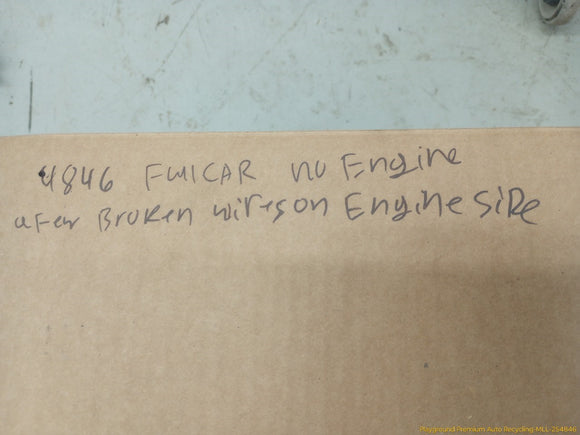 4846 FWICAR no Engine
a Few Broken wires on Engine Side
Playground Premium Auto Recycling-MLL-254846